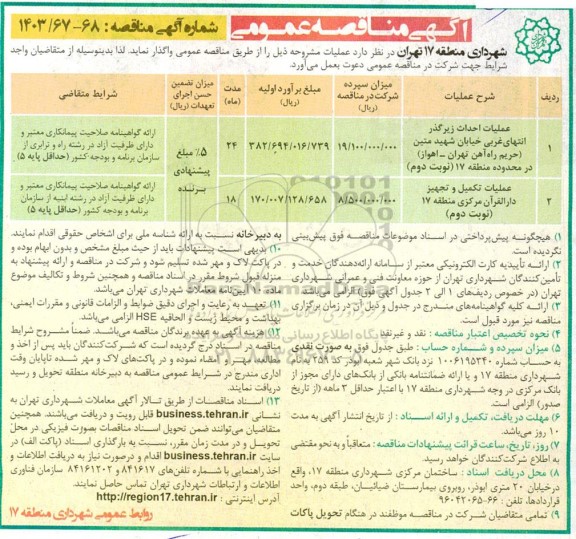 آگهی مناقصه عمومی
شماره آگهی مناقصه : ۶۸-۱۴۰۳/۶۷
شهرداری منطقه ۱۷ تهران در نظر دارد عملیات مشروحه ذیل را از طریق مناقصه عمومی واگذار نماید. لذا بدینوسیله از متقاضیان واجد
شرایط جهت شرکت در مناقصه عمومی دعوت بعمل می‌آورد.
ردیف
شرح عملیات
میزان سپرده شرکت در مناقصه (ریال)
مبلغ برآورد اولیه (ریال)
مدت (ماه)
میزان تضمین حسن اجرای تعهدات (ریال)
شرایط متقاضی
۱
عملیات احداث زیرگذر
انتهای غربی خیابان شهید متین
(حریم راه‌آهن تهران - اهواز)
در محدوده منطقه ۱۷ (نوبت دوم)
۱۹/۱۰۰/۰۰۰/۰۰۰
۳۸۲/۶۹۴/۰۱۶/۷۳۹
۲۴
۵٪ مبلغ
پیشنهادی
برنده
ارائه گواهینامه صلاحیت پیمانکاری معتبر و
دارای ظرفیت آزاد در رشته راه و ترابری از
سازمان برنامه و بودجه کشور (حداقل پایه ۵)
۲
عملیات تکمیل و تجهیز
دارالقرآن مرکزی منطقه ۱۷
(نوبت دوم)
۸/۵۰۰/۰۰۰/۰۰۰
۱۷۰/۰۰۷/۱۲۸/۶۵۸
۱۸
ارائه گواهینامه صلاحیت پیمانکاری معتبر و
دارای ظرفیت آزاد در رشته ابنیه از سازمان
برنامه و بودجه کشور (حداقل پایه ۵)
۱) هیچگونه پیش‌پرداختی در اسناد موضوعات مناقصه فوق پیش‌بینی
نگردیده است.
۲) ارائه تأییدیه کارت الکترونیکی معتبر از سامانه ارائه‌دهندگان خدمت و
تأمین‌کنندگان شهرداری تهران از حوزه معاونت فنی و عمرانی شهرداری
تهران (در خصوص ردیف‌های ۱ الی ۲ جدول آگهی فوق) الزامی می‌باشد.
۳) ارائه کلیه گواهینامه‌های مندرج در جدول و ذیل آن در زمان برگزاری
مناقصه نیز مورد قبول است.
۴) نحوه تخصیص اعتبار مناقصه : نقد و غیرنقد
۵) میزان سپرده و شماره حساب : طبق جدول فوق به صورت نقدی
به حساب شماره ۱۰۰۶۱۹۵۳۴۰ نزد بانک شهر شعبه ابوذر کد
شهرداری منطقه ۱۷ و یا ارائه ضمانتنامه بانکی از بانک‌های دارای مجوز از
بانک مرکزی در وجه شهرداری منطقه ۱۷ با اعتبار حداقل ۳ ماهه (از تاریخ
صدور) الزامی است.
۶) مهلت دریافت، تکمیل و ارائه اسناد : از تاریخ انتشار آگهی به مدت
۱۰ روز می‌باشد.
۷) روز، تاریخ، ساعت قرائت پیشنهادات مناقصه : متعاقباً و به نحو مقتضی
به اطلاع شرکت‌کنندگان خواهد رسید.
۸) محل دریافت اسناد : ساختمان مرکزی شهرداری منطقه ۱۷، واقع
در خیابان ۲۰ متری ابوذر، روبروی بیمارستان ضیائیان، طبقه دوم، واحد
قراردادها، تلفن : ۶۶-۹۶۰۴۲۰۶۵
۹) تمامی متقاضیان شرکت در مناقصه موظفند در هنگام تحویل پاکات
به دبیرخانه نسبت به ارائه شناسه ملی برای اشخاص حقوقی اقدام نمایند.
۱۰) بدیهی است پیشنهادات باید از حیث مبلغ مشخص و بدون ابهام بوده و
در پاکت لاک و مهر شده تسلیم شود و شرکت در مناقصه و ارائه پیشنهاد به
منزله قبول شروط مقرر در اسناد مناقصه و همچنین شروط و تکالیف موضوع
ماده ۱۰ آئین‌نامه معاملات شهرداری تهران می‌باشد.
۱۱) تعهد به رعایت و اجرای دقیق ضوابط و الزامات قانونی و مقررات ایمنی،
بهداشت و محیط زیست و الحاقیه HSE الزامی می‌باشد.
۱۲) هزینه آگهی به عهده برندگان مناقصه می‌باشد. ضمناً مشروح شرایط
مناقصه در اسناد درج گردیده است که شرکت‌کنندگان باید پس از اخذ و
مطالعه، امضاء نموده و در پاکت‌های لاک و مهر شده تا پایان وقت
اداری مندرج در شرایط عمومی مناقصه به دبیرخانه منطقه تحویل و رسید
دریافت نمایند.
۱۳) اسناد مناقصات از طریق تالار آگهی معاملات شهرداری تهران به
نشانی business.tehran.ir قابل رویت و دریافت می‌باشند. همچنین
متقاضیان می‌توانند ضمن تحویل اسناد مناقصات بصورت فیزیکی در محل
تحویل و در مدت زمان مقرر، نسبت به بارگذاری اسناد (پاکت الف) در
سایت business.tehran.ir اقدام و درصورت نیاز به دریافت اطلاعات و
اخذ راهنمایی با شماره تلفن‌های ۸۴۱۶۱۷ و ۸۴۱۶۱۲۰۲ سازمان فناوری
اطلاعات و ارتباطات شهرداری تهران تماس حاصل نمایند.
آدرس اینترنتی : http://region17.tehran.ir
روابط عمومی شهرداری منطقه ۱۷